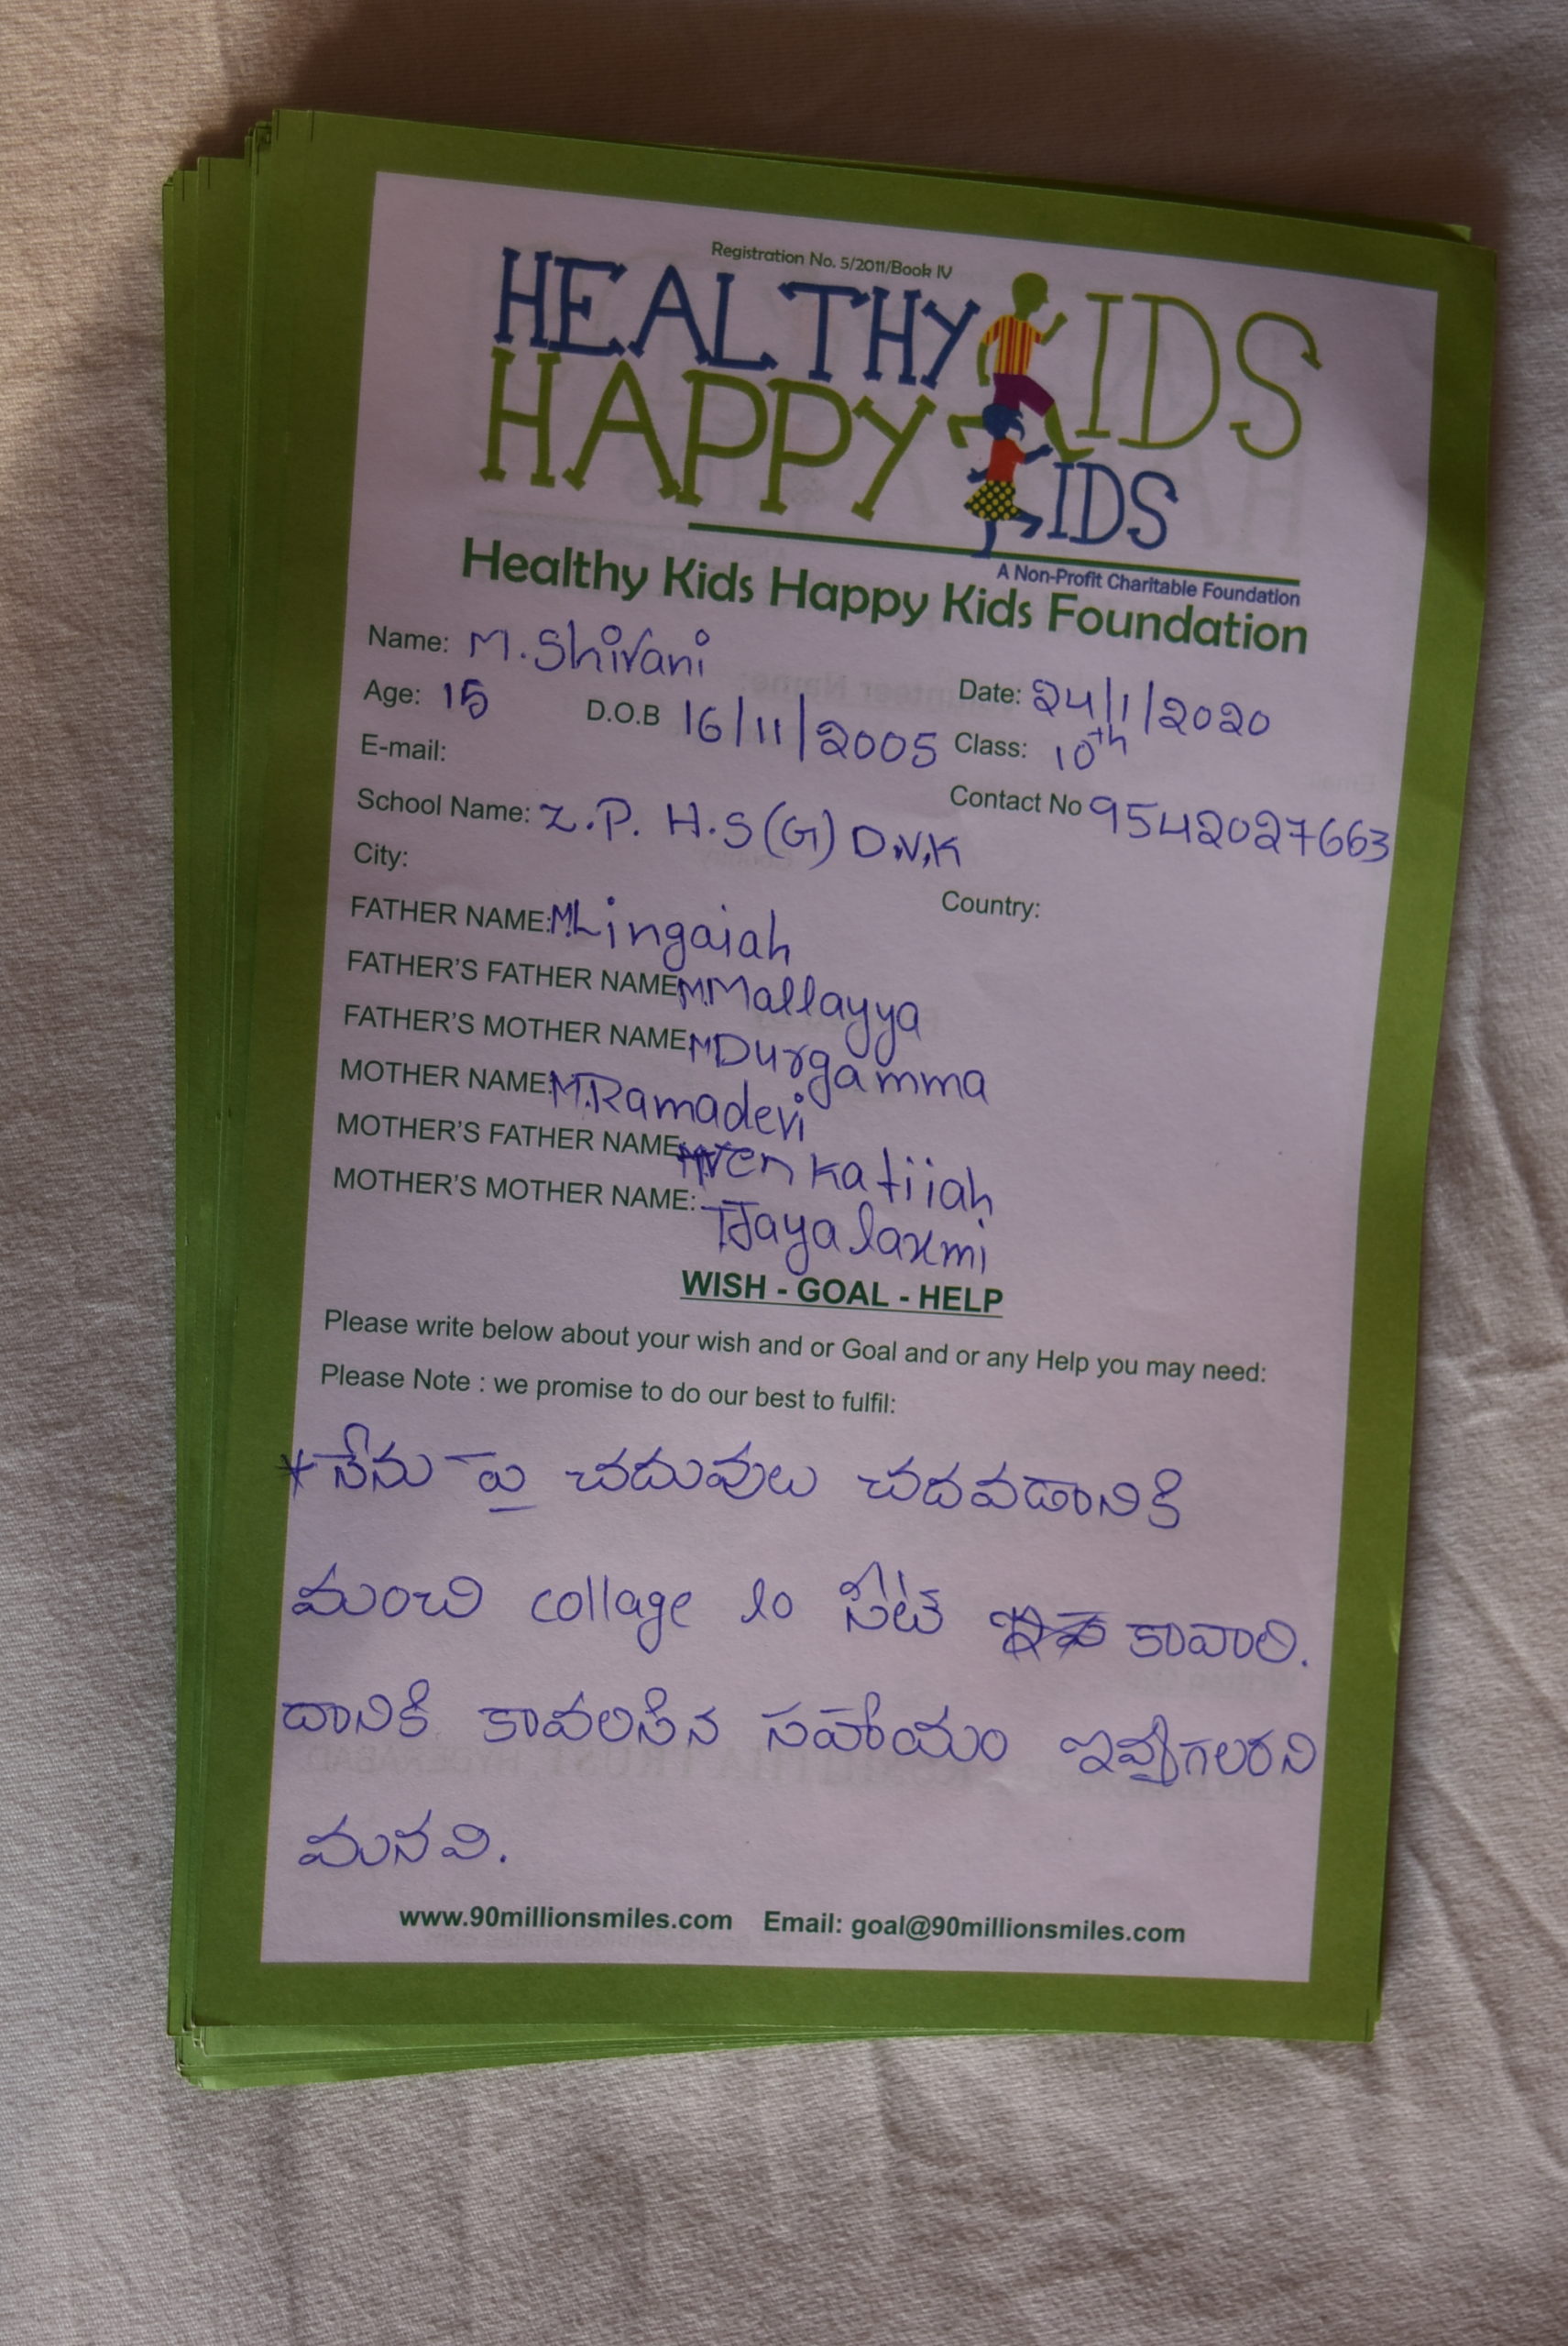 Registration No. 5/2011/Book IV
HEALTHY KIDS
HAPPY KIDS
A Non-Profit Charitable Foundation
Healthy Kids Happy Kids Foundation
Name: M. Shivani
Date: 24/1/2020
Age: 15 D.O.B 16/11/2005 Class: 10th
E-mail:
Contact No 9542027663
School Name: Z.P. H.S (G) D.V.K
City:
Country:
FATHER NAME: M.Lingaiah
FATHER'S FATHER NAME: M.Mallayya
FATHER'S MOTHER NAME: M Durgamma
MOTHER NAME: M.Ramadevi
MOTHER'S FATHER NAME: Venkatiiah
MOTHER'S MOTHER NAME: T Jayalaxmi
WISH - GOAL - HELP
Please write below about your wish and or Goal and or any Help you may need:
Please Note : we promise to do our best to fulfil:
* నేను పై చదువులు చదవడానికి
మంచి collage lo సీట్ కావాలి.
దానికి కావలసిన సహాయం ఇవ్వగలరని
మనవి.
www.90millionsmiles.com Email: goal@90millionsmiles.com